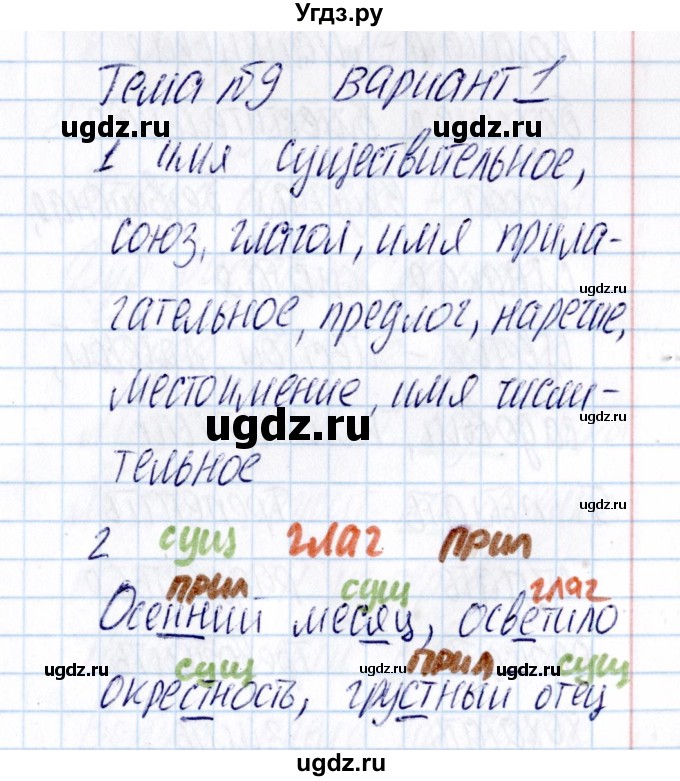 Угдз.ру
Тема №9 вариант 1
ugdz.ru ugdz.ru
1 имя существительное,
союз, глагол, имя прила-
ugdz.ru
гательное, предлог, наречие,
местоимение, имя числи-
ugdz.ru ugdz.ru
тельное
2 сущ глаг прил
ugdz.ru
прил сущ глаг
Осенний месяц, осветило
ugdz.ru ugdz.ru ugdz.ru
сущ прил сущ
окрестность, грустный отец
ugdz.ru